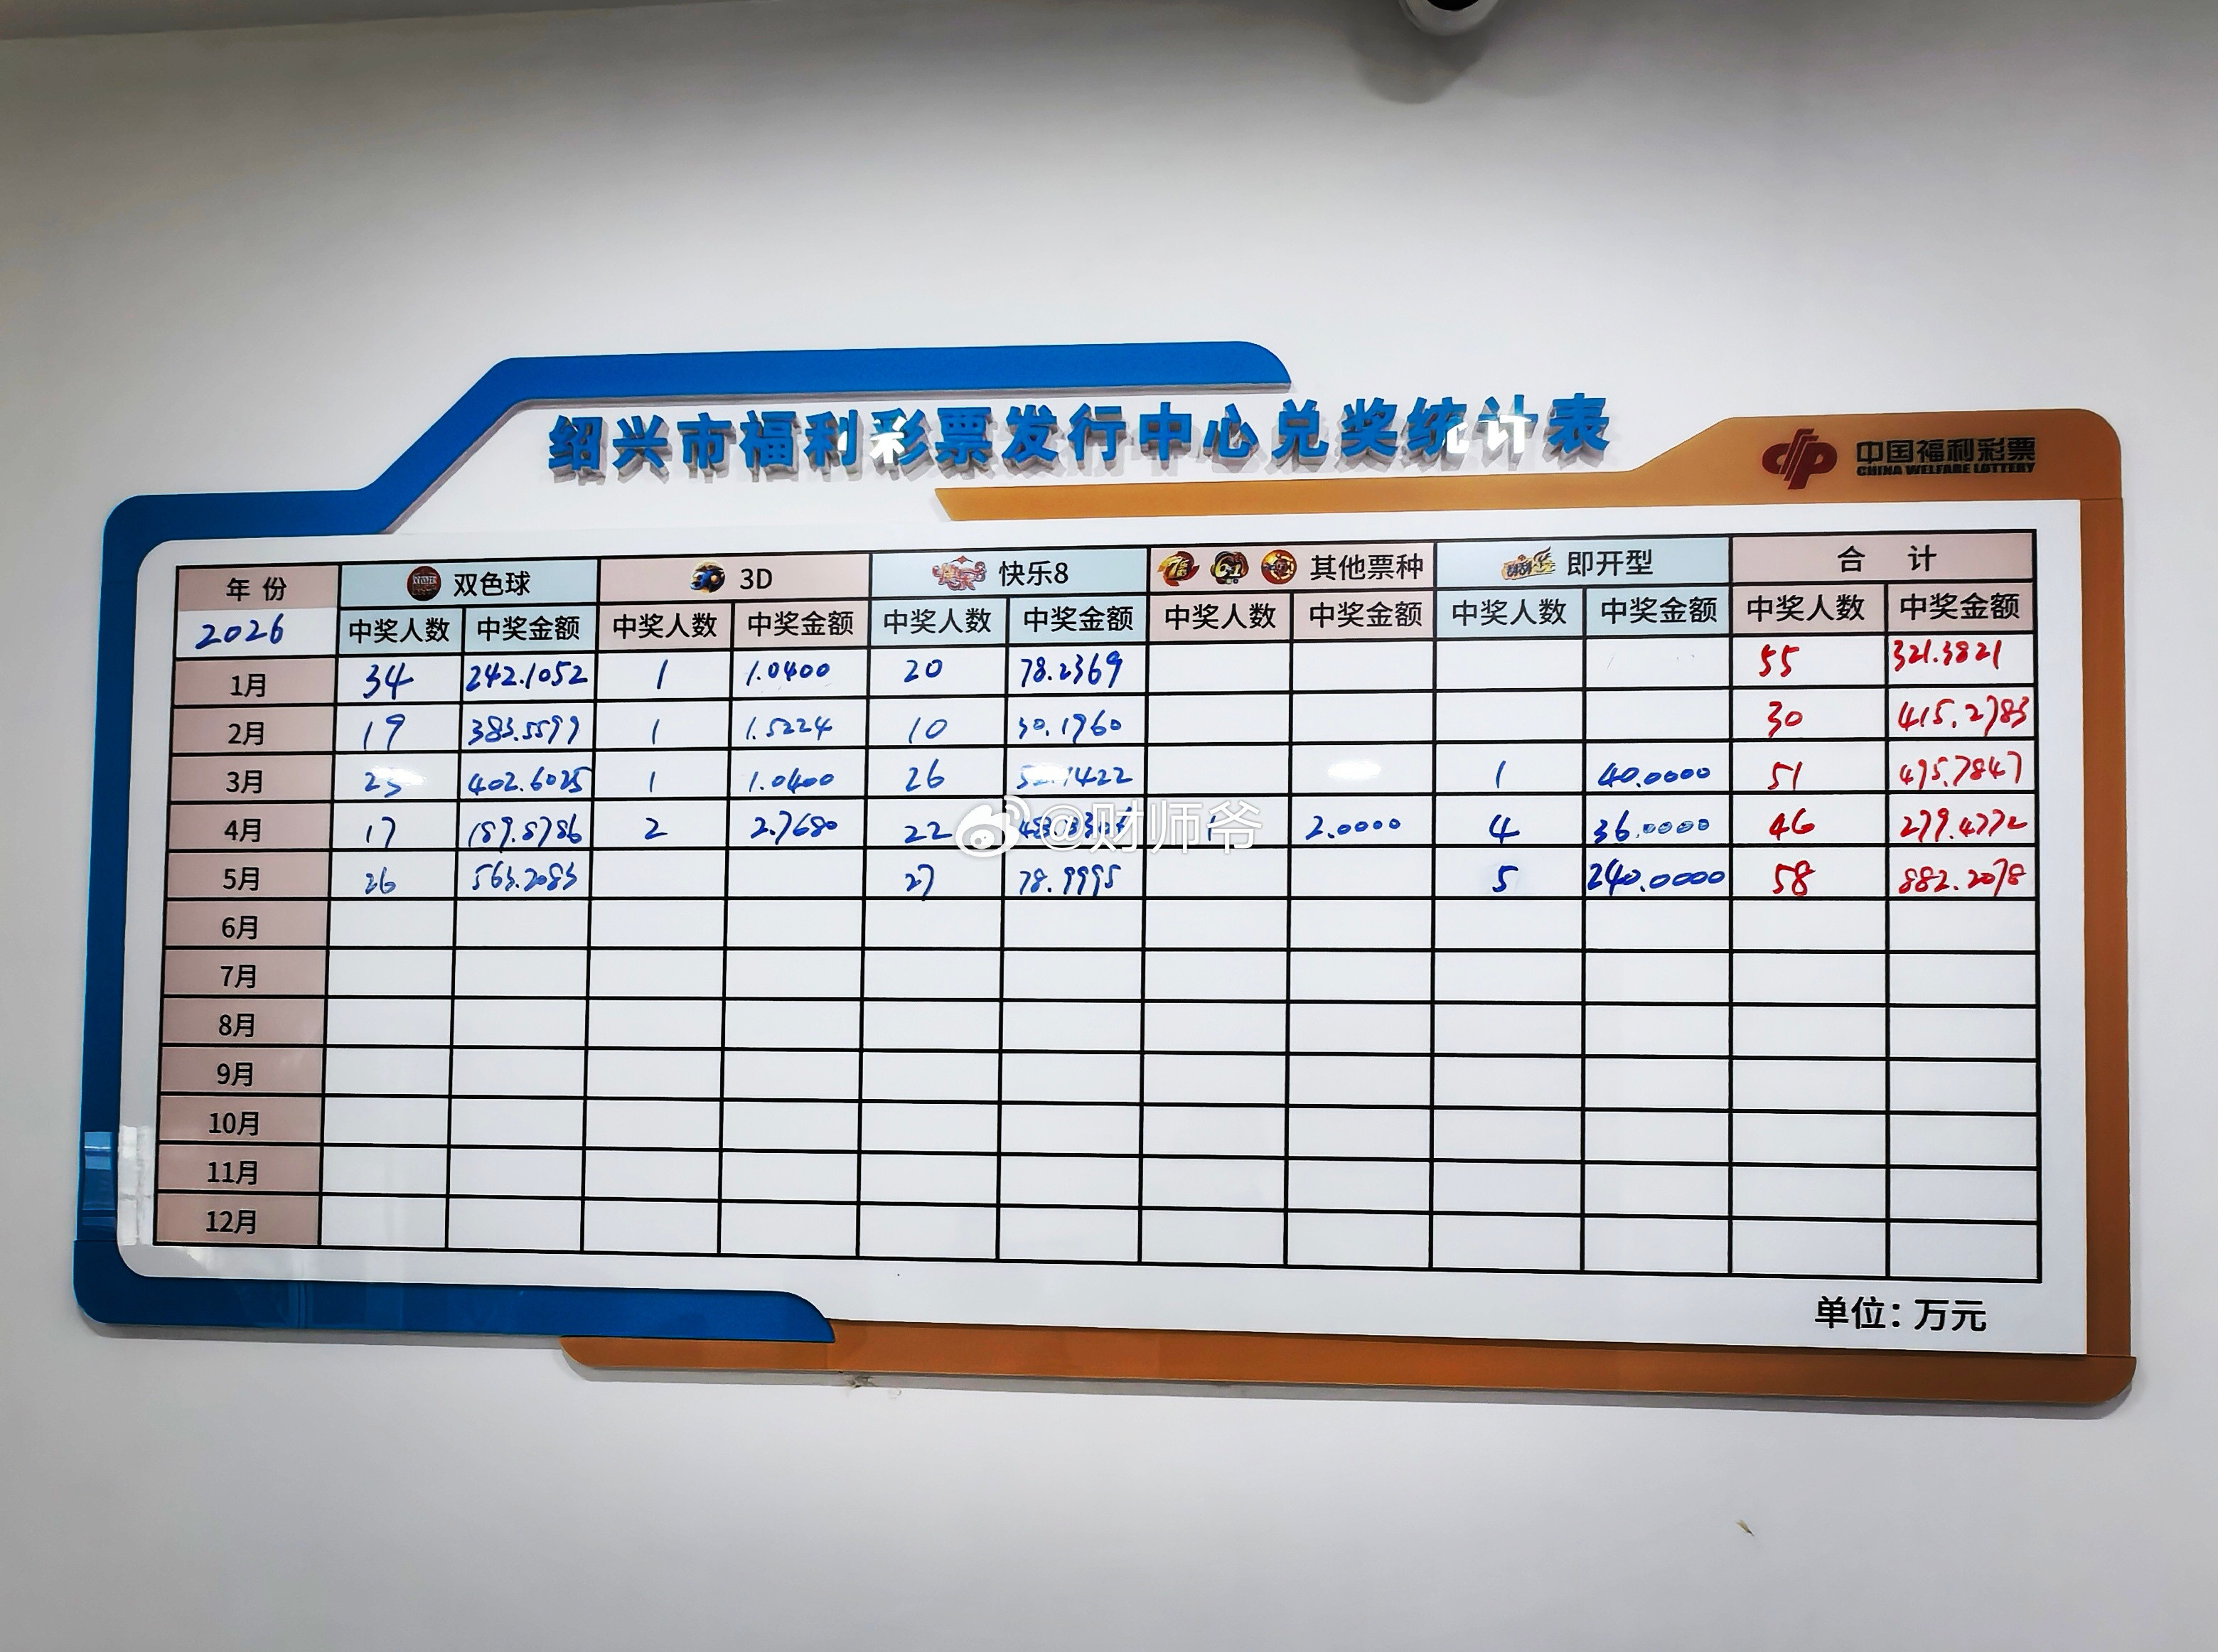 绍兴市福利彩票发行中心兑奖统计表
中国福利彩票
CHINA WELFARE LOTTERY
年份 双色球 3D 快乐8 其他票种 即开型 合计
2026 中奖人数 中奖金额 中奖人数 中奖金额 中奖人数 中奖金额 中奖人数 中奖金额 中奖人数 中奖金额 中奖人数 中奖金额
1月 34 242.1052 1 1.0400 20 78.2369 55 321.3821
2月 19 383.5599 1 1.5224 10 30.1960 30 415.2783
3月 23 402.6025 1 1.0400 26 52.1422 1 40.0000 51 495.7847
4月 17 189.8786 2 2.7680 22 1 2.0000 4 36.0000 46 279.4772
5月 26 563.2083 27 78.9995 5 240.0000 58 882.2078
6月
7月
8月
9月
10月
11月
12月
单位：万元
@财师爷